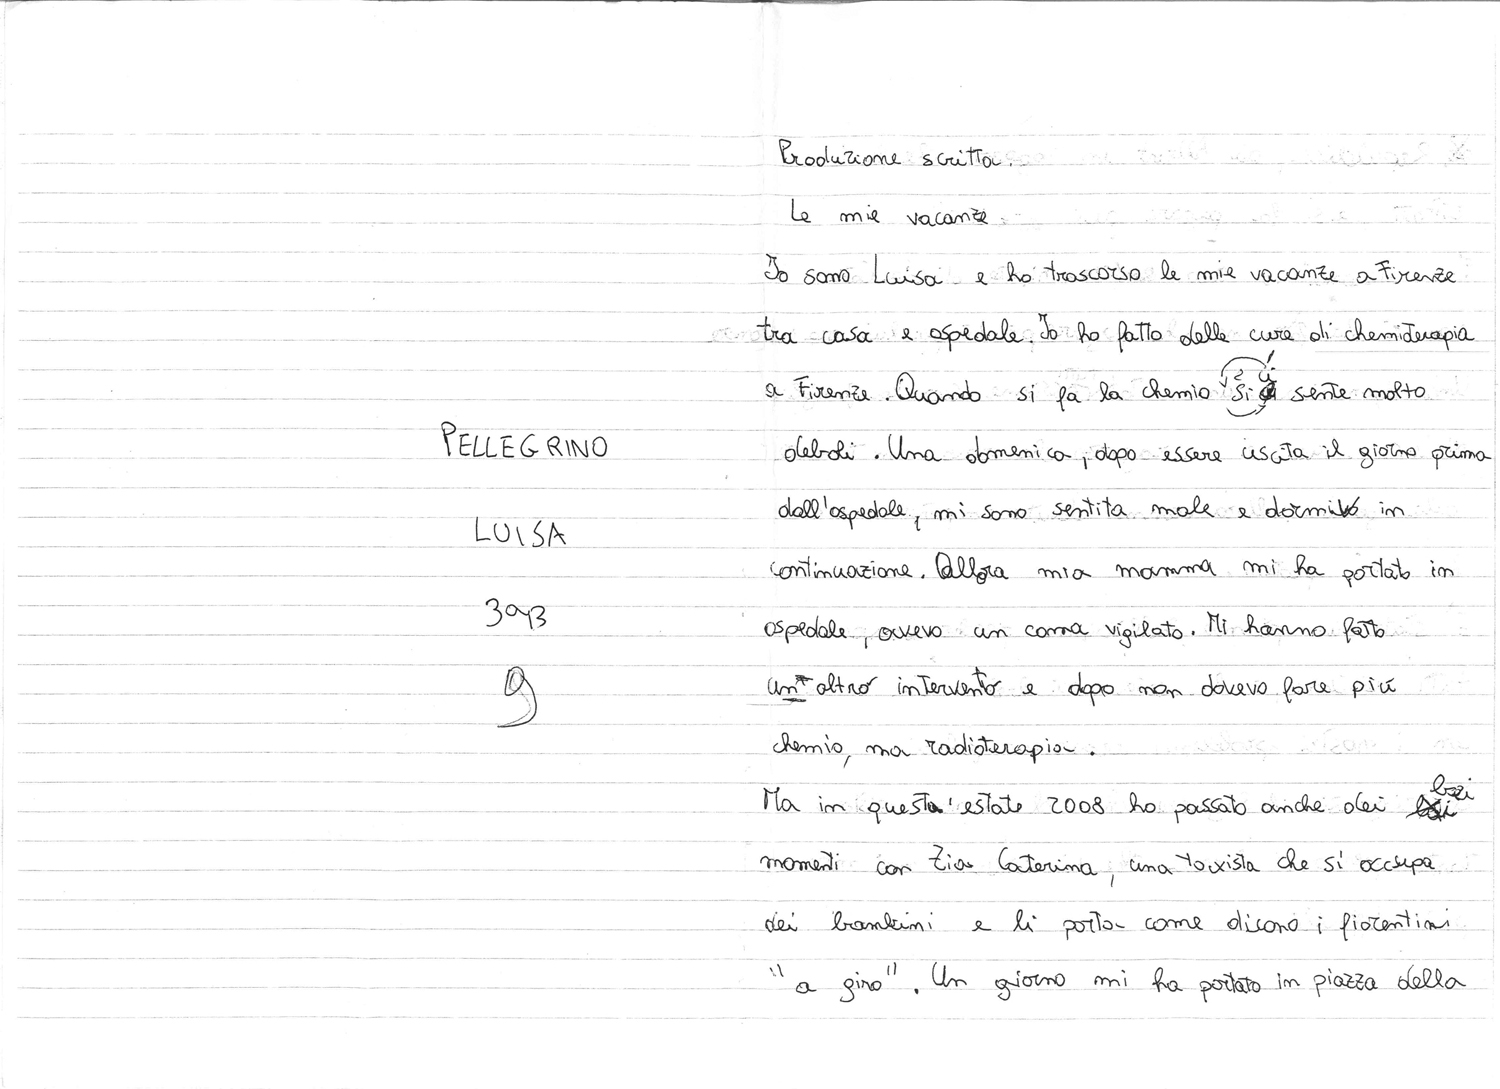 PELLEGRINO
LUISA
3 
9
Produzione scritta.
Le mie vacanze.
Io sono Luisa e ho trascorso le mie vacanze a Firenze
tra casa e ospedale. Io ho fatto delle cure di chemiterapia
a Firenze. Quando si fa la chemio ci si sente molto
deboli. Una domenica, dopo essere uscita il giorno prima
dall'ospedale, mi sono sentita male e dormivo in
continuazione. Allora mia mamma mi ha portato in
ospedale, avevo un coma vigilato. Mi hanno fatto
un altro intervento e dopo non dovevo fare più
chemio, ma radioterapia.
Ma in questa estate 2008 ho passato anche dei
momenti con Zia Caterina, una taxista che si occupa
dei bambini e li porta come dicono i fiorentini
"a giro". Un giorno mi ha portato in piazza della